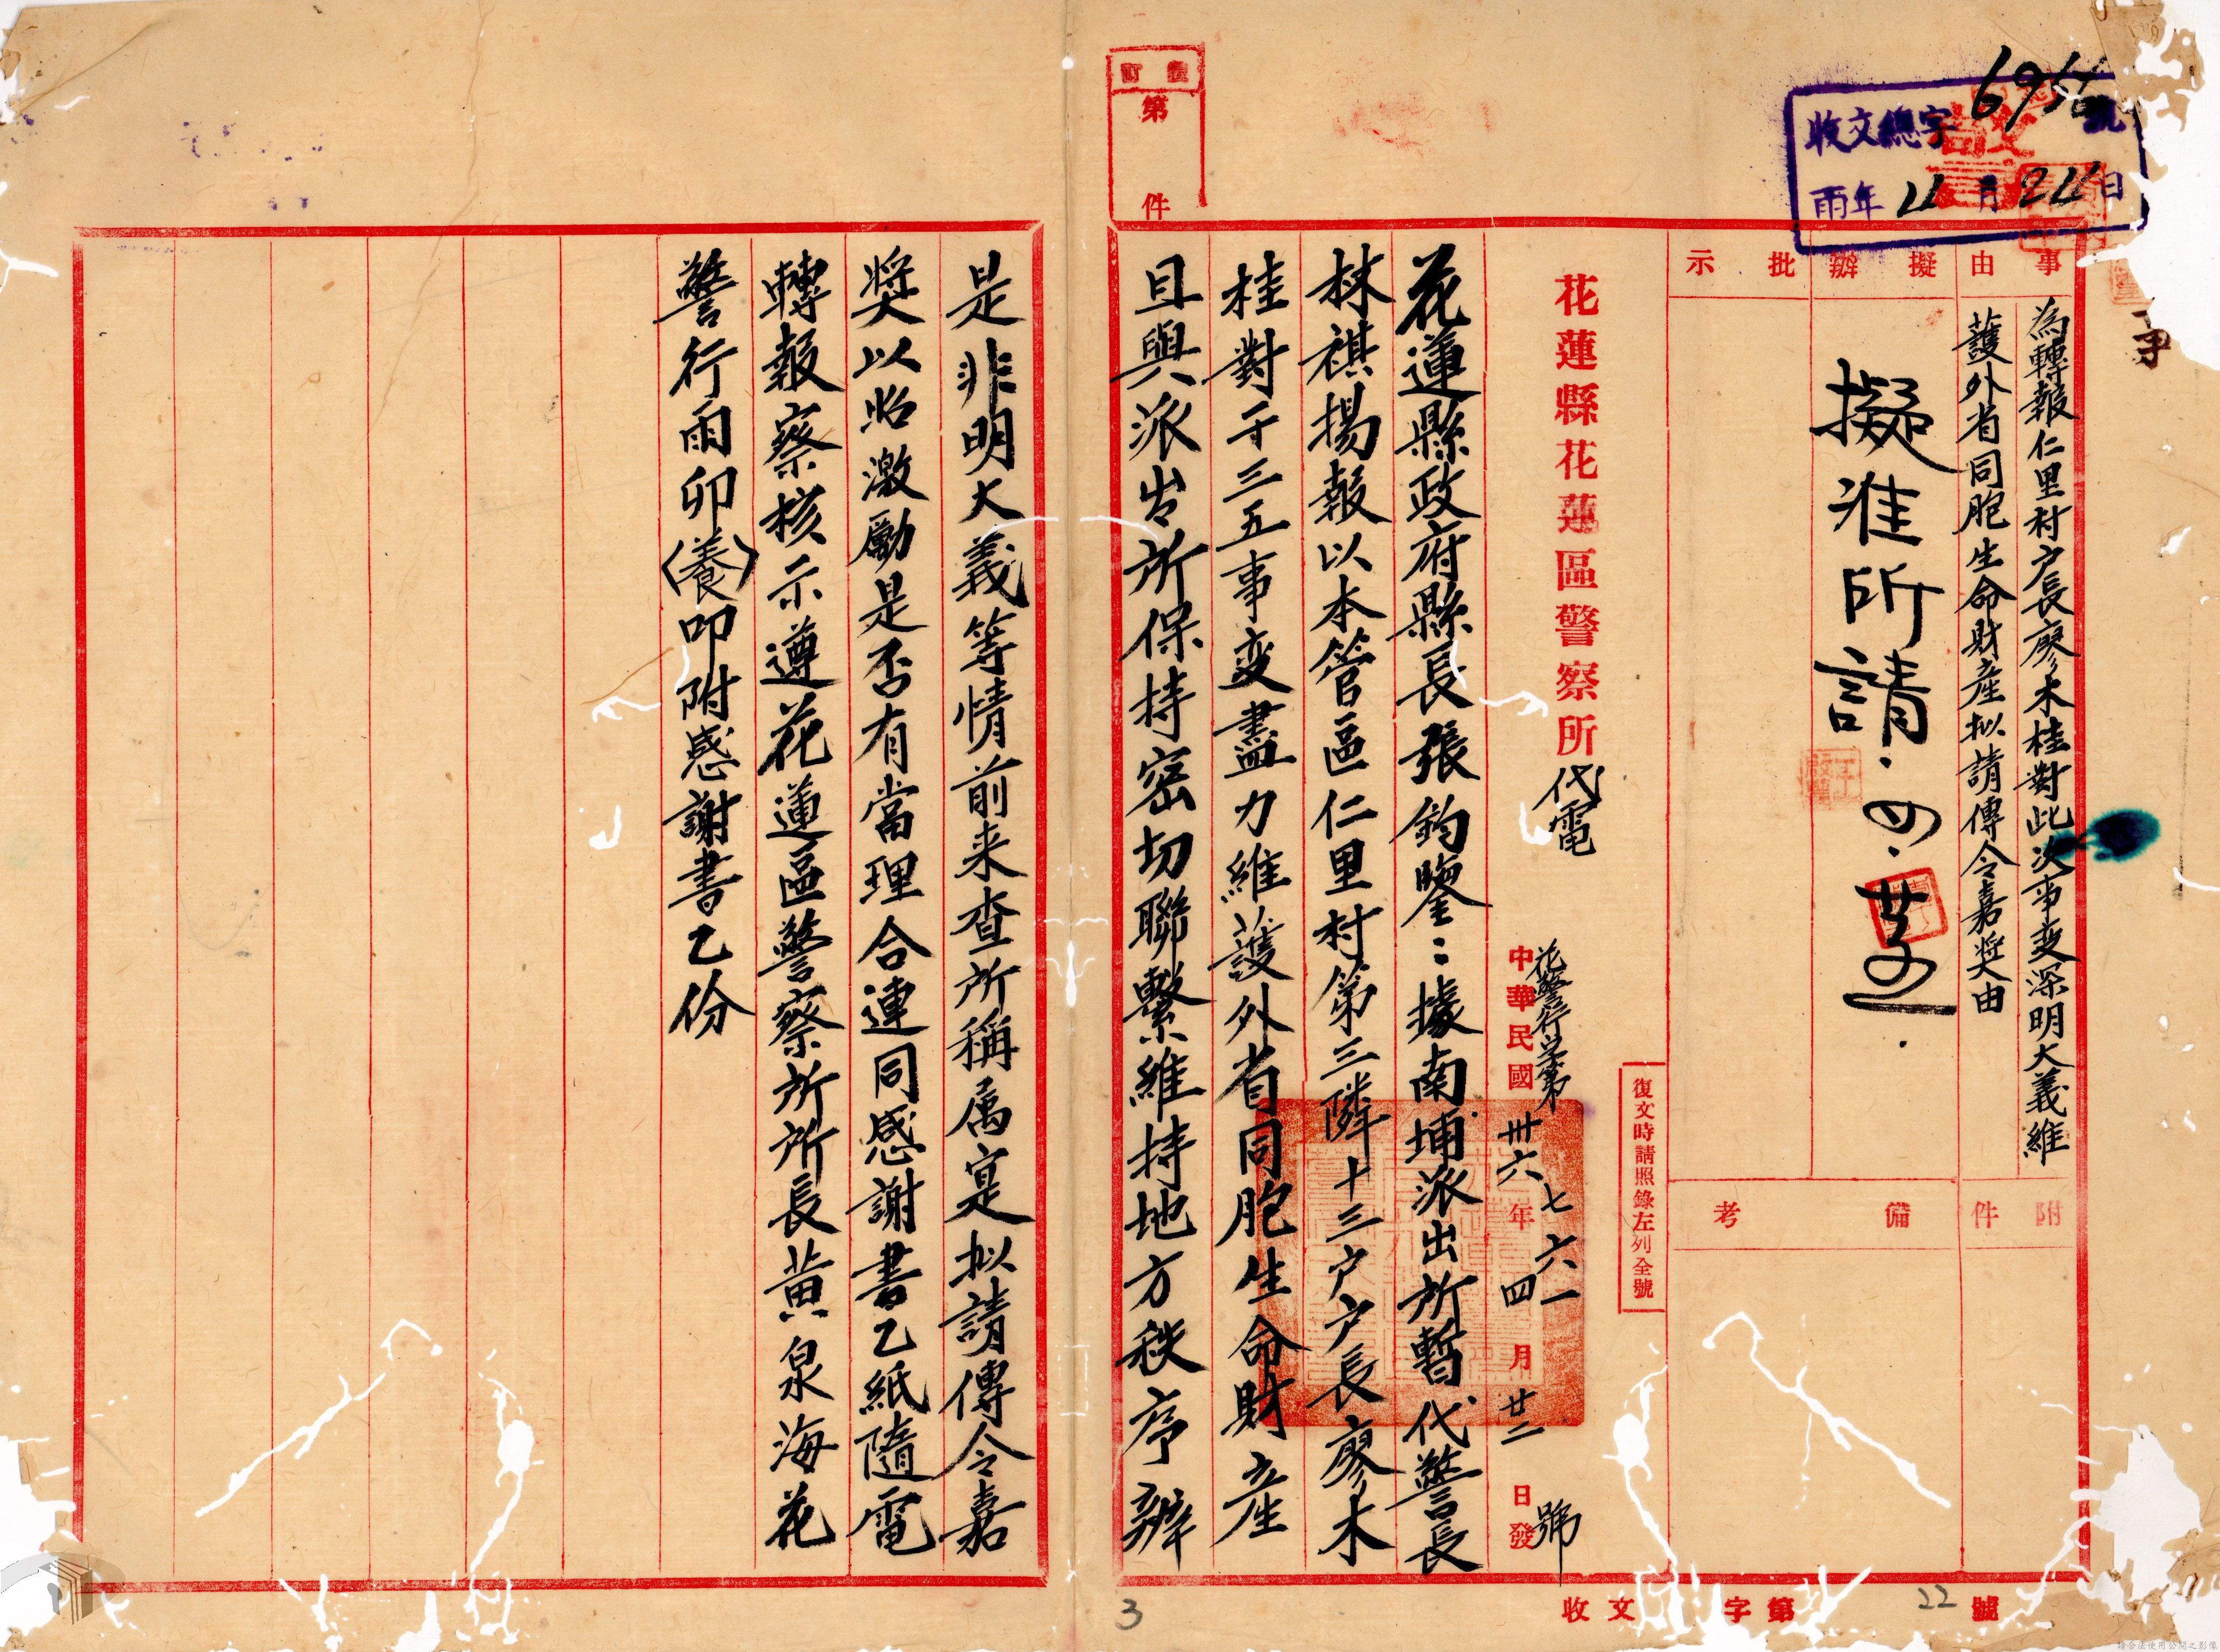 收文總字6956號
雨年4月24日
事由
為轉報仁里村户長廖木桂對此次事变深明大義維
護外省同胞生命財產拟請傳令嘉奖由
擬辦
擬准所請.四.廿四
批示
附件
備考
復文時請照錄左列全號
花蓮縣花蓮區警察所代電
花警行第七六一號
中華民國卅六年四月廿二日發
裝訂
第 件
花蓮縣政府縣長張鈞鑒:據南埔派出所暫代警長
林祺揚報以本管區仁里村第三隣十三户户長廖木
桂對于三五事变盡力維護外省同胞生命財產
且與派出所保持密切聯繫維持地方秩序辨
是非明大義等情前来查所稱属寔拟請傳令嘉
奖以昭激勵是否有當理合連同感謝書乙紙隨電
轉報察核示遵花蓮區警察所所長黄泉海花
警行雨卯(養)叩附感謝書乙份
收文 字第 22 號
3